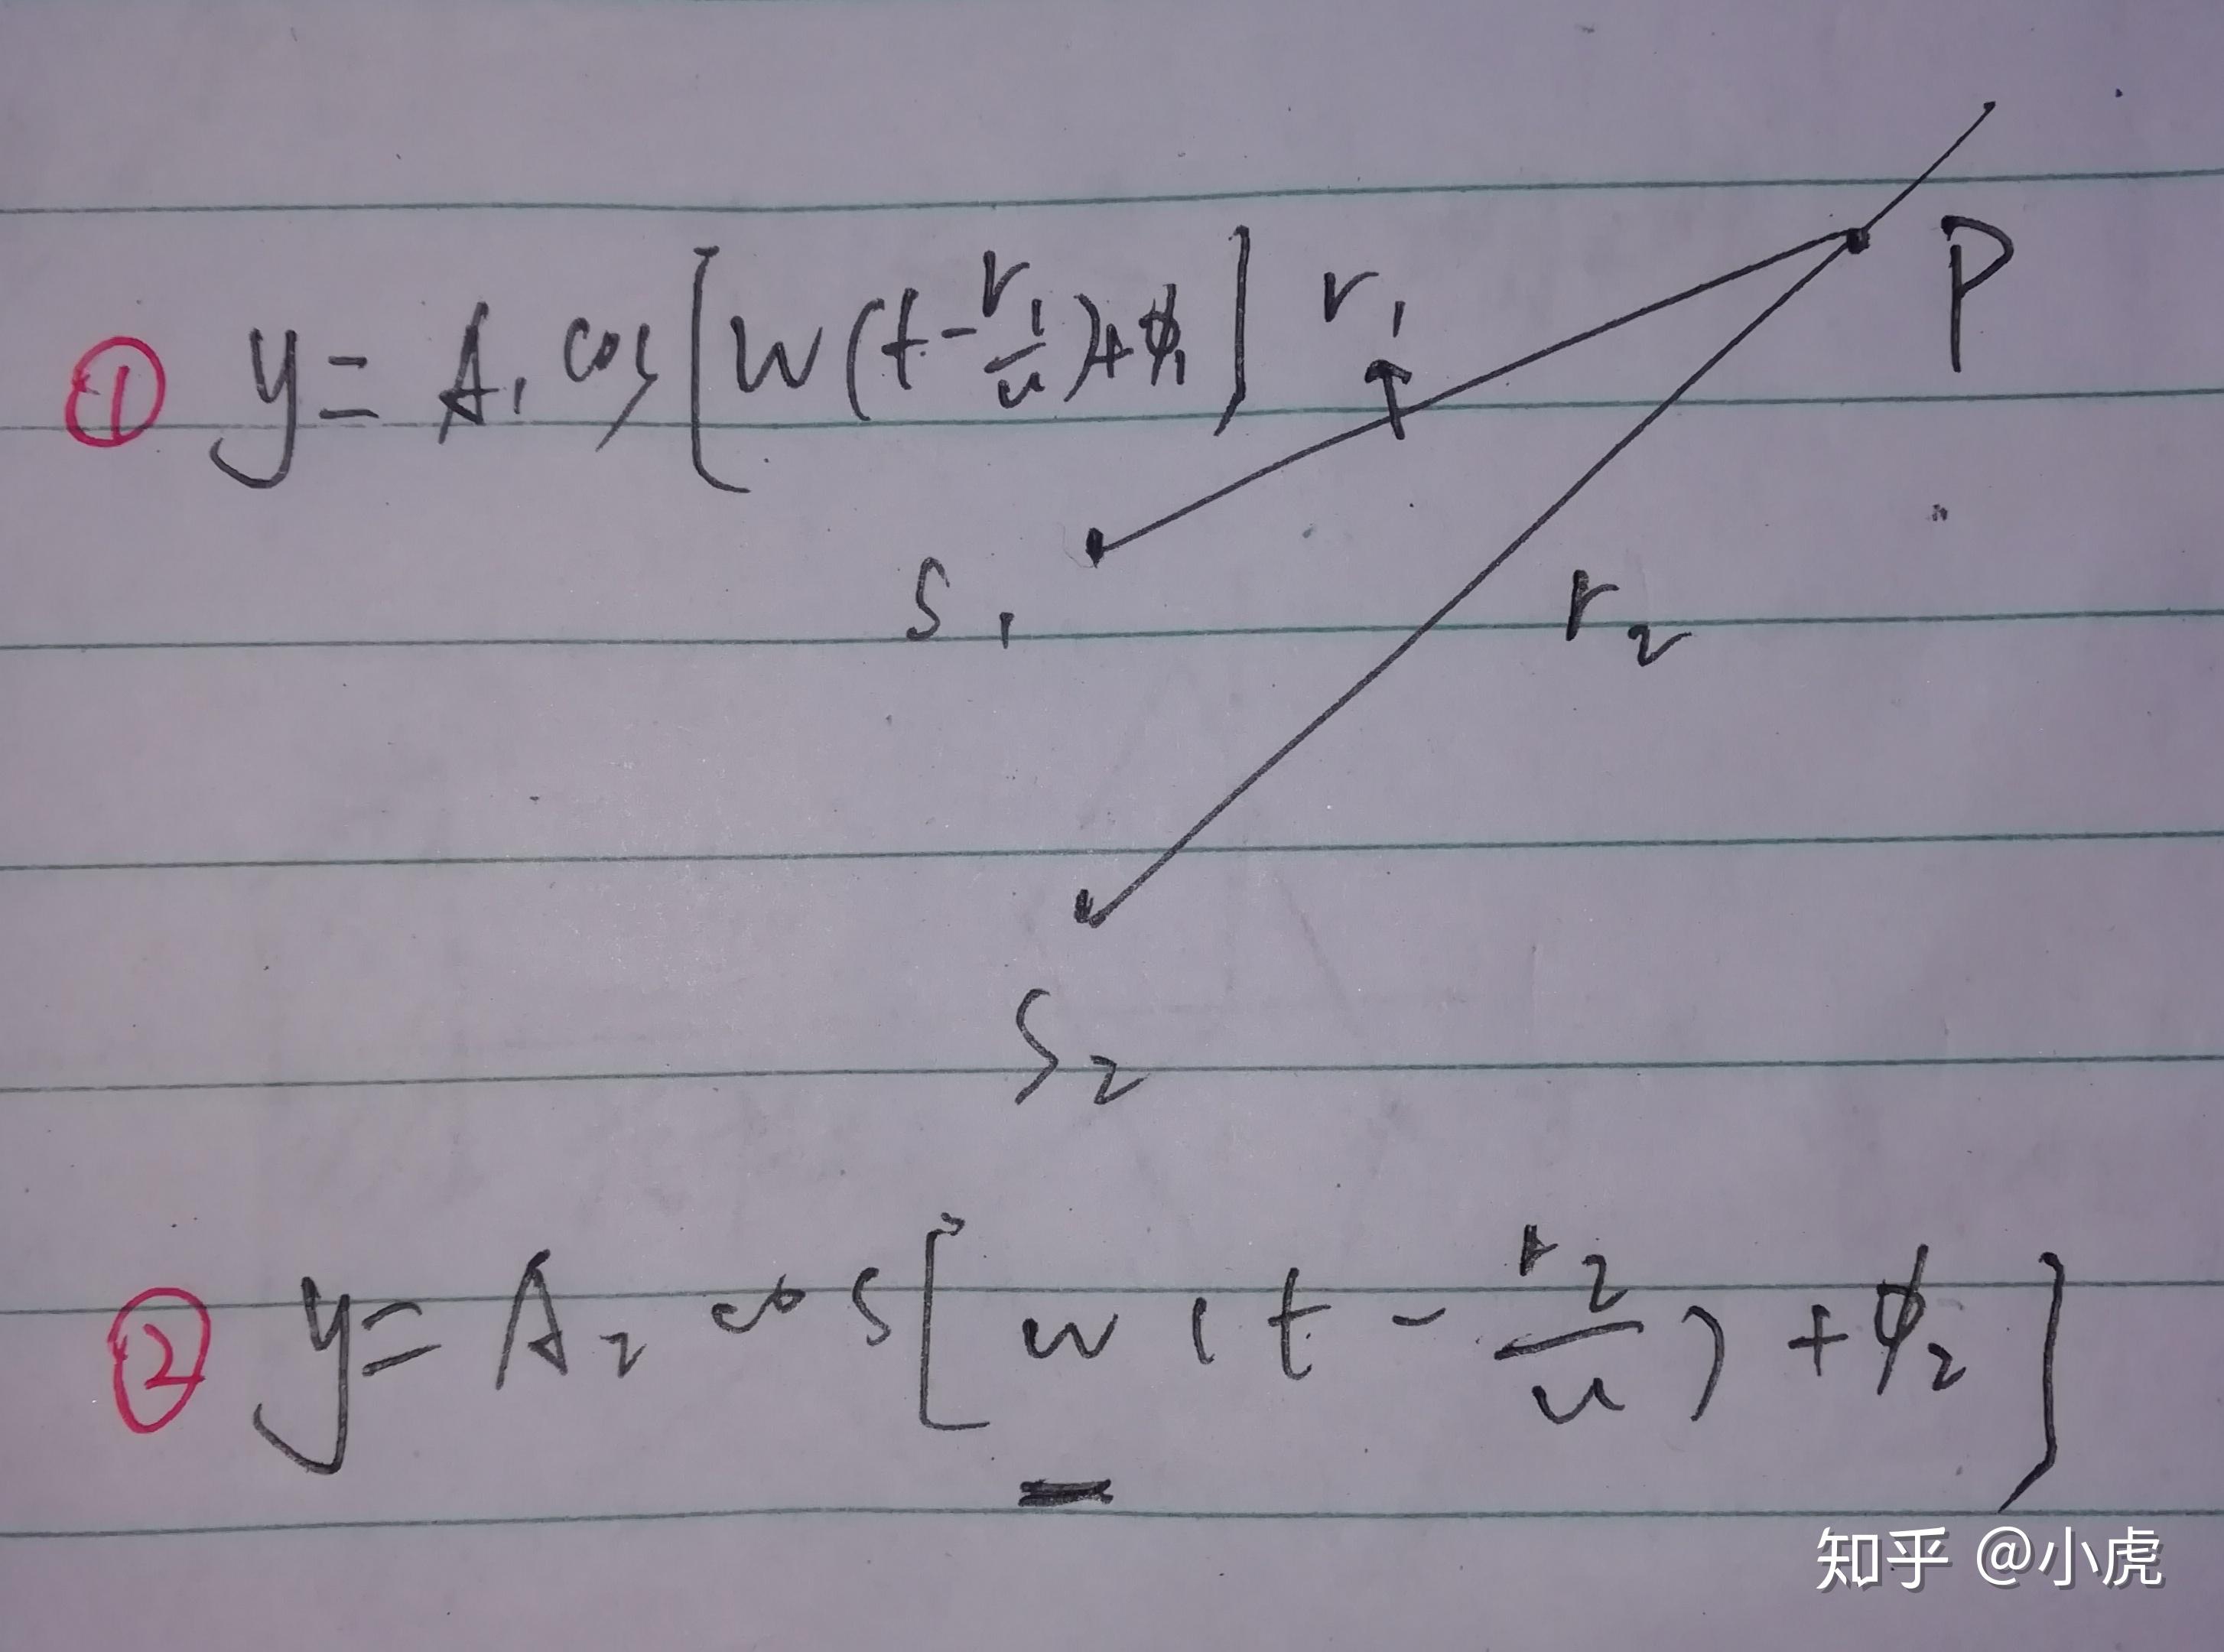 ① y = A₁ cos[w(t - r₁/u) + φ₁]
r₁
P
S₁
r₂
S₂
② y = A₂ cos[w(t - r₂/u) + φ₂]
知乎 @小虎